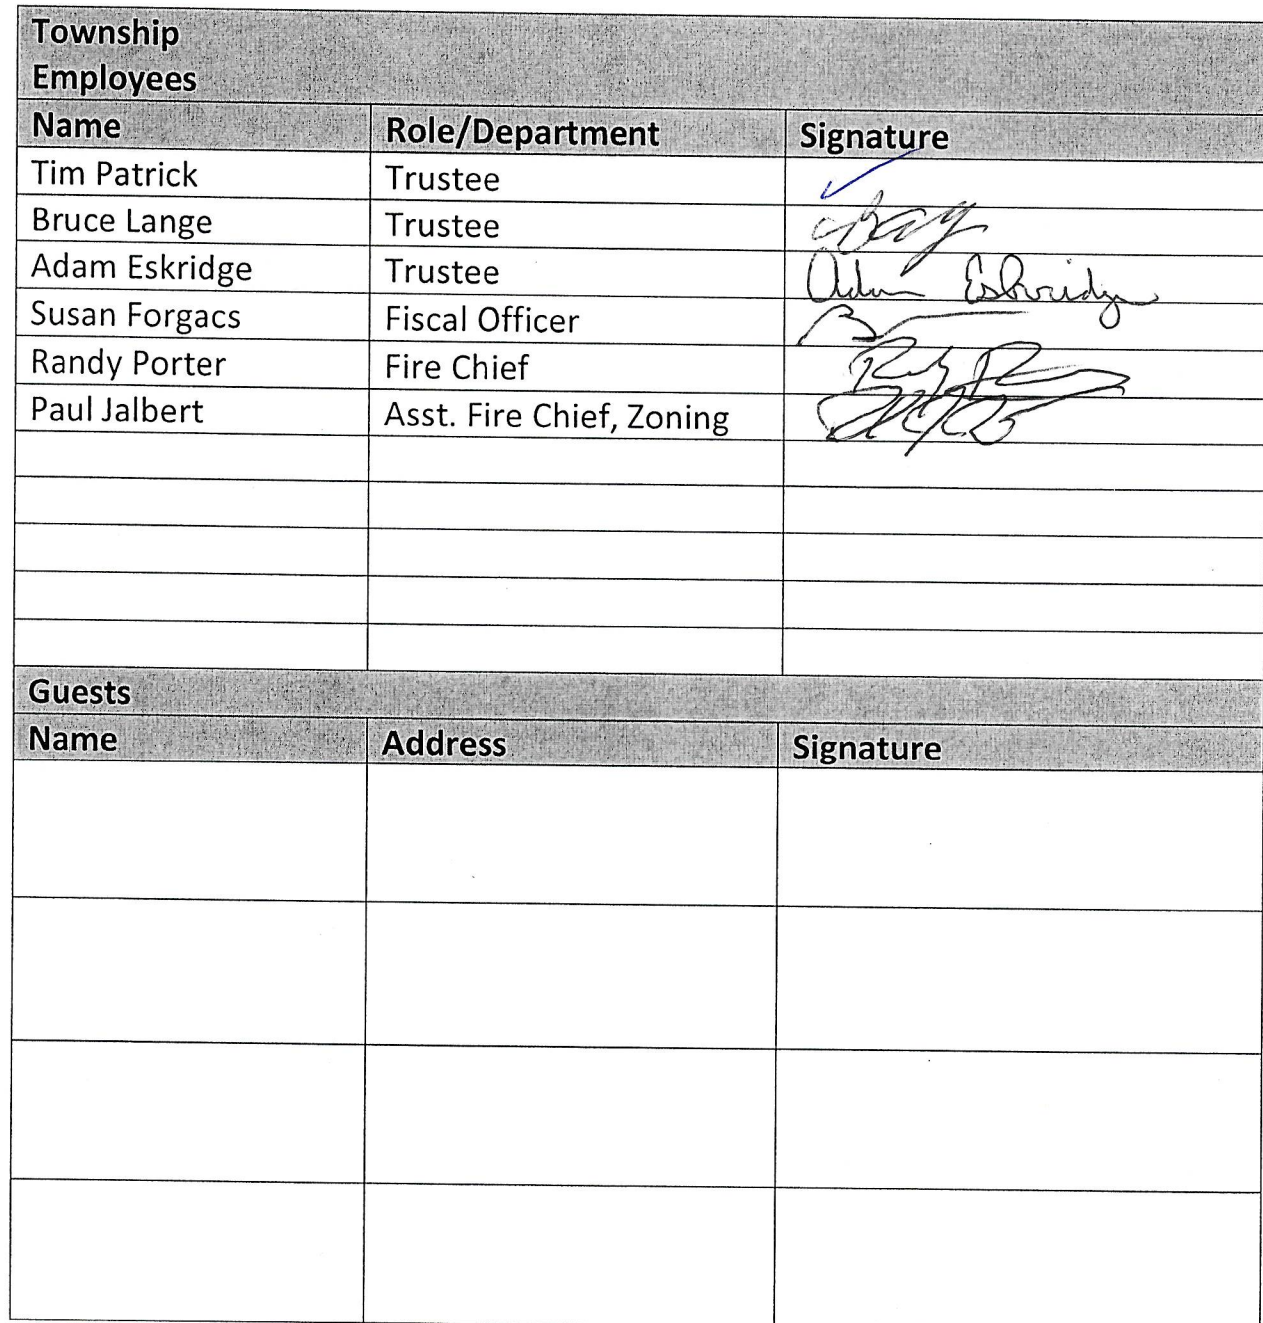 Township
Employees
Name Role/Department Signature
Tim Patrick Trustee
Bruce Lange Trustee
Adam Eskridge Trustee Adam Eskridge
Susan Forgacs Fiscal Officer
Randy Porter Fire Chief
Paul Jalbert Asst. Fire Chief, Zoning
Guests
Name Address Signature